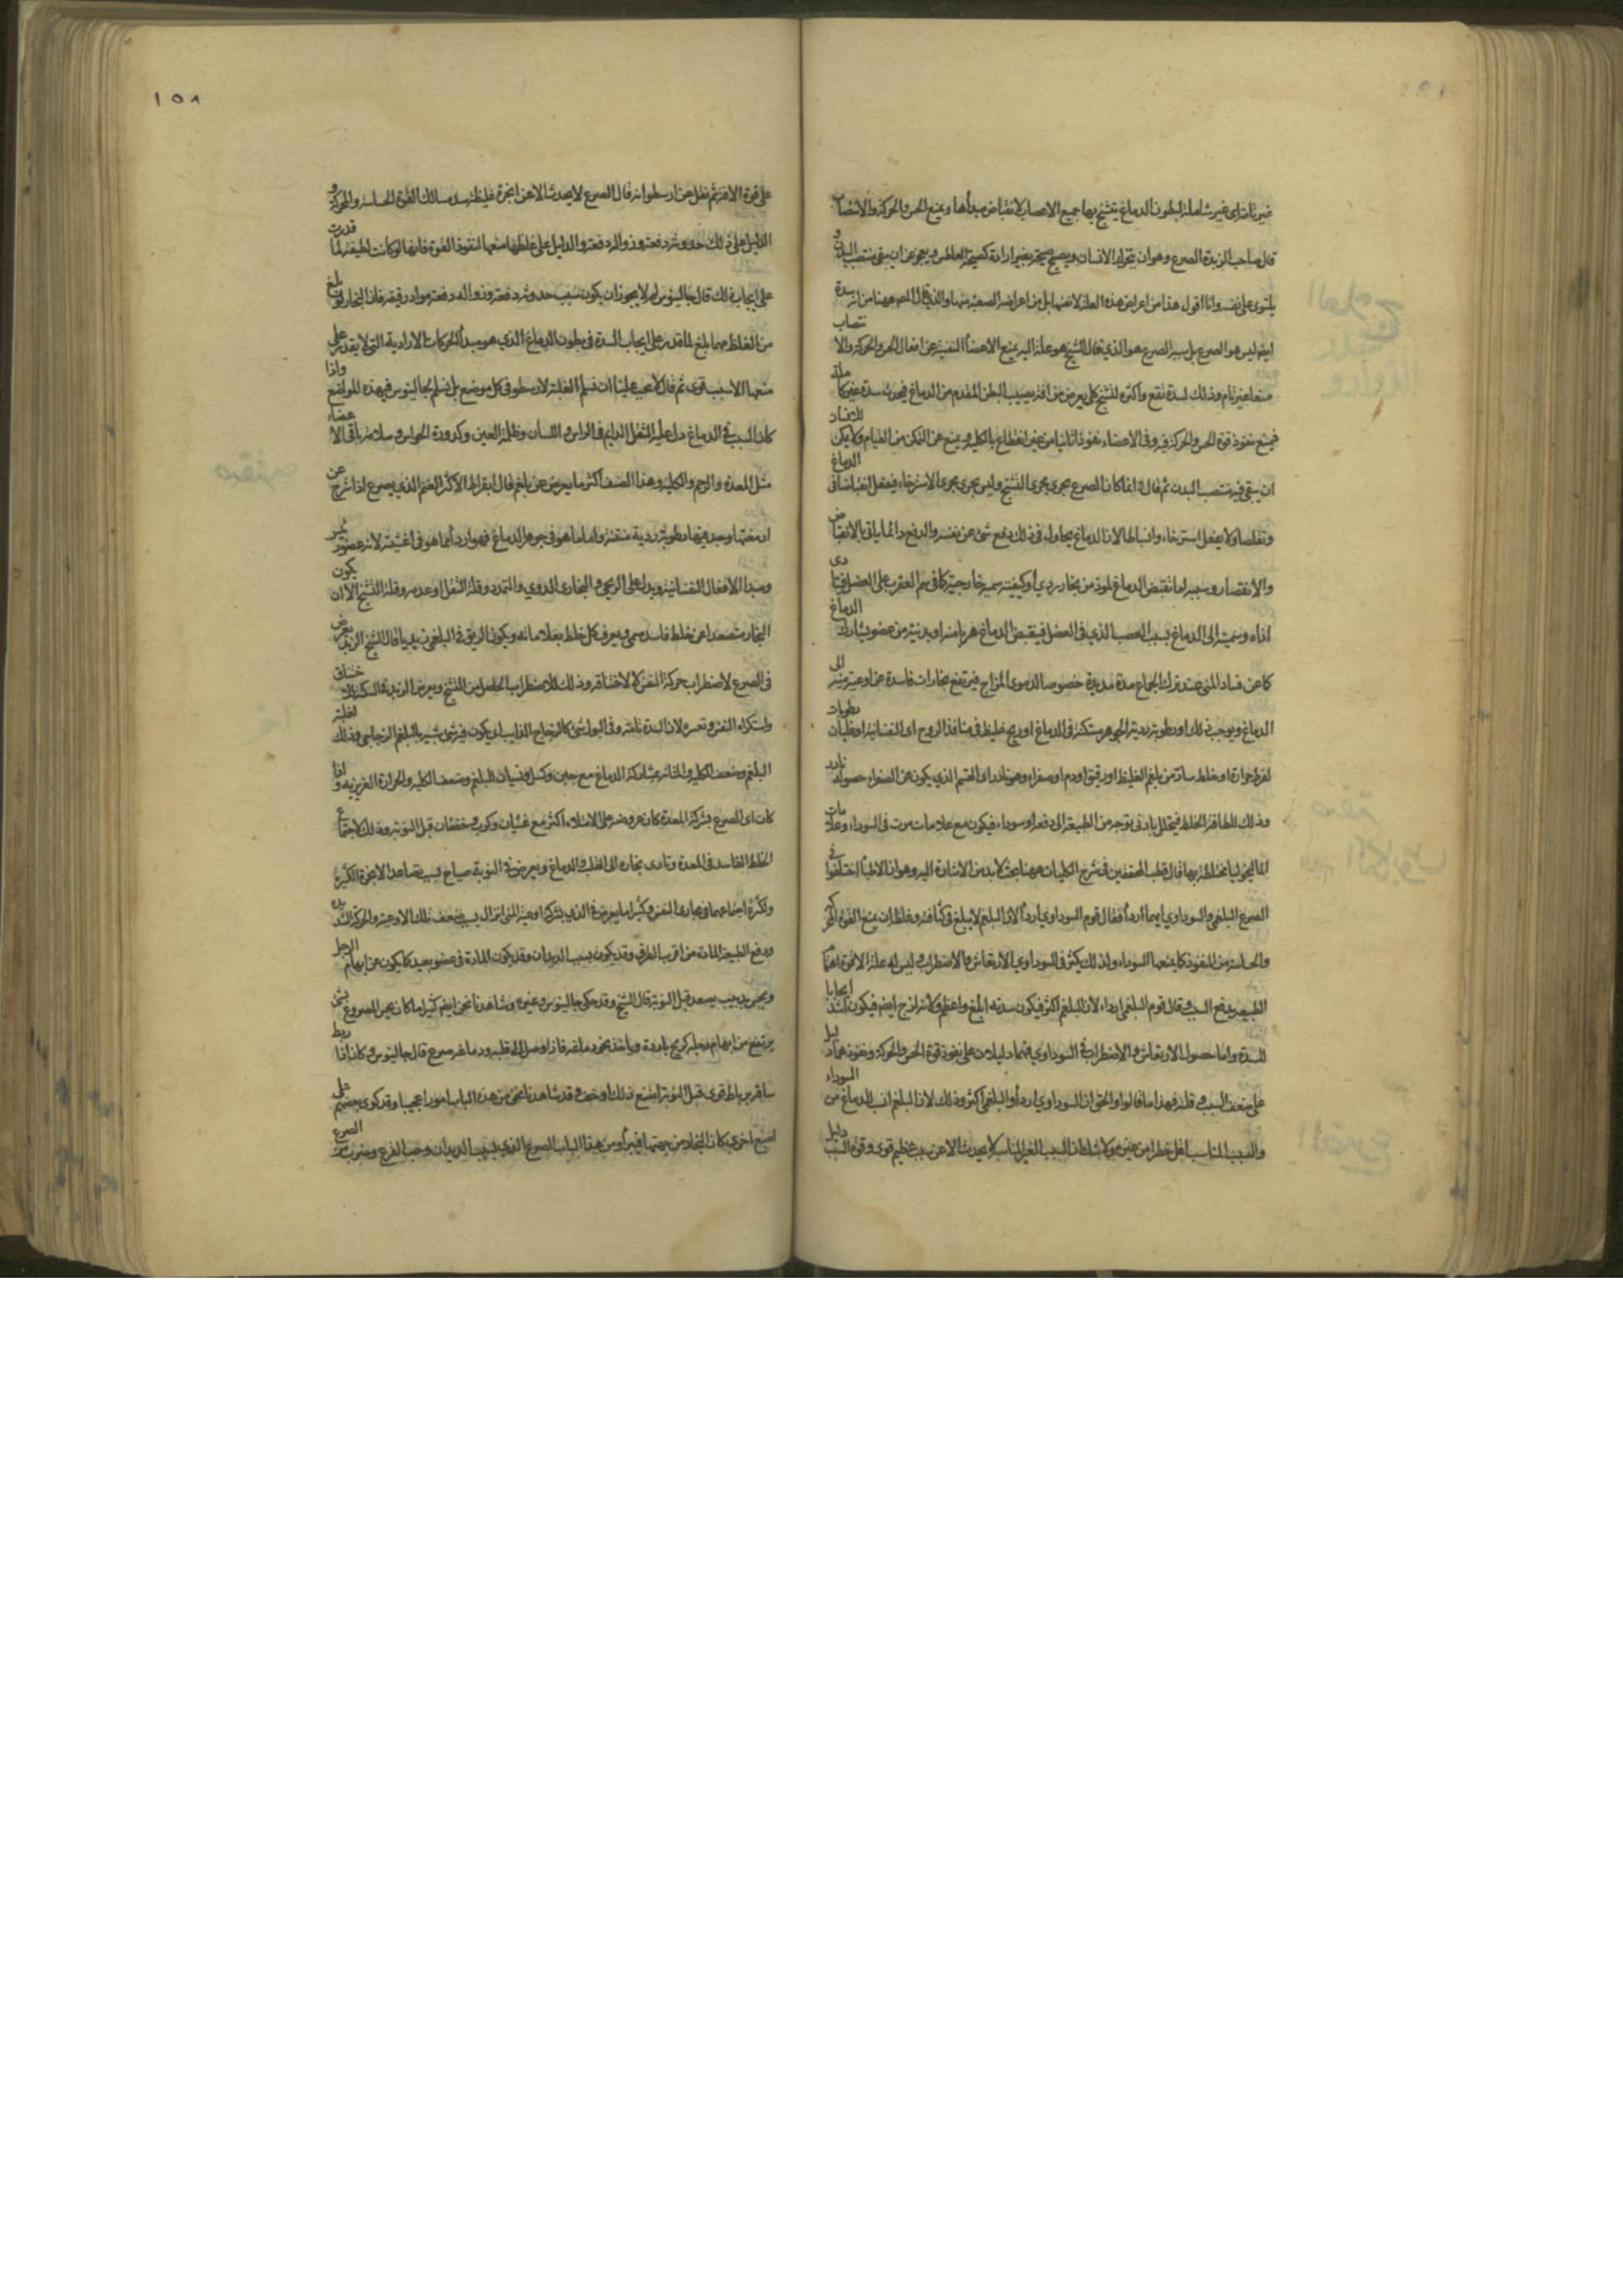 غير تامة اى غير شاملة لبطون الدماغ يتشنج بها جميع الاعصاب لانقباض مبدأها ويمنع الحس والحركة والانتصاب
قال صاحب الزبدة الصرع وهو ان يتحرك الانسان ويصيح صيحة بغير ارادة كصيحة العاطس ويعجز عن ان يبقى منتصب البدن و
يلتوى على نفسه وانا اقول هذا من اعراض هذه العلة لا نفسها بل من اعراضه الصعبة منها والذى قال المص ههنا من انه سدة
ايضا ليس هو الصرع بل سبب الصرع هو الذى قال الشيخ هو علة الية يمنع الاعضاء النفسية عن افعال الحس والحركة والانتصاب
منعا غير تام وذلك لسدة تقع واكثره لتشنج كلى يعرض من افة يصيب البطن المقدم من الدماغ فيحدث سدة غير كاملة
فيمنع نفوذ قوة الحس والحركة فيه وفى الاعضاء نفوذا تاما من غير انقطاع بالكلية ويمنع عن التمكن من القيام ولا يمكن للانسان
ان يبقى فيه منتصب البدن ثم قال وانما كان الصرع يجرى مجرى التشنج وليس يجرى مجرى الاسترخاء فيفعل انقباضا فى الدماغ
وتقلصا ولا يفعل استرخاء وانبساطا لان الدماغ يحاول فى ذلك دفع شئ عن نفسه والدفع دائما ياتى بالانقباض
والانعصار وسببه اما تقبض الدماغ لموذ من بخار ردى او كيفية سمية خارجية كما فى سم العقرب على العضل فيتادى
اذاه وسميته الى الدماغ بسبب العصب الذى فى العضل فيتقبض الدماغ هربا منه او بدنية من عضو يشارك الدماغ
كما عن فساد المنى عند ترك الجماع مدة مديدة خصوصا الدموى المزاج فيرتفع بخارات فاسدة عن اوعية منيه الى
الدماغ ويوجب ذلك او رطوبة ردية الجوهر مستكنة فى الدماغ او ريح غليظ فى منافذ الروح اى النفسانية او غليان رطوبات
لفرط حرارة او خلط ساد من بلغم الغليظ او رقيق او دم او صفراء وهو نادر اى القسم الذى يكون عن الصفراء حصوله نادر
وذلك للطافة الخلط فيتحلل بادنى توجه من الطبيعة الى دفعه او سوداء فيكون مع علامات مرت فى السوداء وعلامات
الماليخوليا مختلطة بها قال قطب المحققين فى شرح الكليات ههنا بحث لا بد من الاشارة اليه وهو ان الاطباء اختلفوا فى
الصرع البلغمى والسوداوى ايهما اردأ فقال قوم السوداوى اردأ لان البلغم لا يبلغ فى كثافته وغلظه ان يمنع القوى المحركة
والحاسة من النفوذ كما يمنعها السوداء ولذلك يكثر فى السوداوى الارتعاش والاضطراب وليس له علة الا قوة اهتمام
الطبيعة بدفع السبب وقال قوم البلغمى اردأ لان البلغم اكثر فيكون سدته ابلغ واعظم ولانه لزج ايضا فيكون اشد ايجابا
للسدة واما حصول الارتعاش والاضطراب فى السوداوى فهما دليلان على نفوذ قوة الحس والحركة ونفوذهما دليل
على ضعف السبب وقلته فهذا ما قالوا والحق ان السوداوى اردأ والبلغمى اكثر وذلك لان البلغم انسب للدماغ من السوداء
والسبب المناسب اقل خطرا من غيره ولا شك ان السبب الغير المناسب لا يحدث الا عن سبب عظيم قوى وقوة السبب دليل
١٥٨
على قوة الافة ثم نقل عن ارسطو انه قال الصرع لا يحدث الا عن ابخرة غليظة تسد مسالك القوة الحاسة والمحركة و
الدليل على ذلك حدوثه دفعة وزواله دفعة والدليل على غلظها منعها لنفوذ القوة فانها لو كانت لطيفة لما قدرت
على ايجاب ذلك قال جالينوس لم لا يجوز ان يكون سبب حدوثه دفعة وزواله دفعة مواد رقيقة فان البخار لو بلغ
من الغلظ مهما بلغ لما قدر على ايجاب السدة فى بطون الدماغ الذى هو مبدأ الحركات الارادية التى لا يقدر على
منعها الا سبب قوى ثم قال لا يجب علينا ان نسلم الغلبة لارسطو فى كل موضع بل نسلم لجالينوس فى هذه المواضع واذا
كان السبب فى الدماغ دل عليه الثقل الدايم فى الراس واللسان وظلمة العين وكدورة الحواس وسلامة باقى الاعضاء
مثل المعدة والرحم والكلية وهذا الصنف اكثر ما يعرض عن بلغم قال ابقراط الاكثر الغنم الذى يصرع اذا شرح عن
ادمغتها وجد فيها رطوبة ردية منتنة واما ما هو فى جوهر الدماغ فهو اردأ مما هو فى اغشيته لانه عضو شريف
ومبدأ الافعال النفسانية ويدل على الريحى والبخارى الدوى والتمدد وقلة الثقل او عدمه وقلة التشنج الا ان يكون
البخار متصعدا عن خلط فاسد سمى ويعرف كل خلط بعلاماته ويكون الريق فى البلغمى زبديا قال الشيخ الزبد يعرض
فى الصرع لاضطراب حركة النفس لا لاختناقه وذلك للاضطراب الحاصل من التشنج ويعرض الزبد فى السكتة لاختناق
واستكراه النفس وتعسره لان السدة تامة وفى البول شئ كالزجاج الذايب اى يكون فيه شئ شبيه بالبلغم الزجاجى وذلك لغلبة
البلغم وضعف الكلية والمثانة بمشاركة الدماغ مع جبن وكسل ونسيان للبلغم وضعف الكلية والحرارة الغريزية واذا
كان اى الصرع بشركة المعدة كان عروضه على الامتلاء اكثر مع غثيان وكرب وخفقان قبل النوبة وذلك لاجتماع
الخلط الفاسد فى المعدة وتادى بخاره الى القلب والدماغ ويعرض فى النوبة صياح بسبب تصاعد الابخرة الكثيرة
ولكثرة اجتماعها فى مجارى النفس وكثيرا ما يعرض فى الذى بشركة اوعية المنى انزال بسبب ضعف تلك الاوعية والحركة الشديدة
ودفع الطبيعة المادة من اقرب الطرق وقد يكون بسبب الديدان وقد يكون المادة فى عضو بعيد كما يكون عن ابهام الرجل
ويحس بدبيب يصعد قبل النوبة قال الشيخ وقد حكى جالينوس وغيره وشاهدنا نحن ايضا كثيرا ما كان يحس المصروع بشئ
يرتفع من ابهام رجله كريح باردة وياخذ نحو دماغه فاذا وصل الى قلبه ودماغه صرع قال جالينوس وكان اذا ربط
ساقه برباط قوى قبل النوبة امتنع ذلك او خف وقد شاهدنا نحن من هذا الباب امورا عجيبة وقد كوى بعضهم على
اصبع اخرى كان البخار من جهتها فبرأ ومن هذا الباب الصرع الذى بسبب الديدان وحب القرع وضرب من الصرع